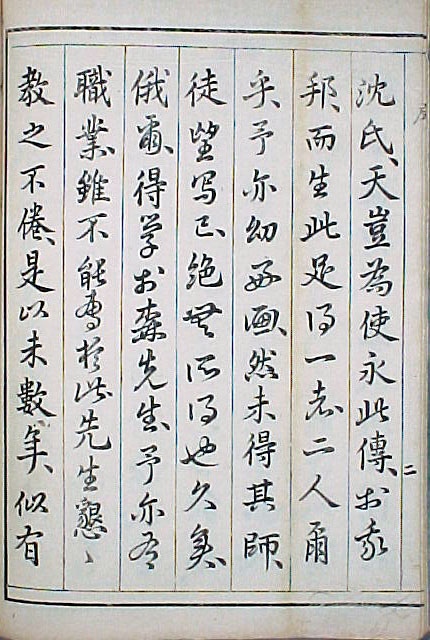 沈氏、天豈為使永此傳、於我
邦、而生此足得一志二人爾
乎、予亦幼好画、然未得其師、
徒望写已、絶無所得也久矣、
俄爾、得学於森先生、予亦有
職業、雖不能専於此、先生懇〻
教之不倦、是以未數年、似有
二